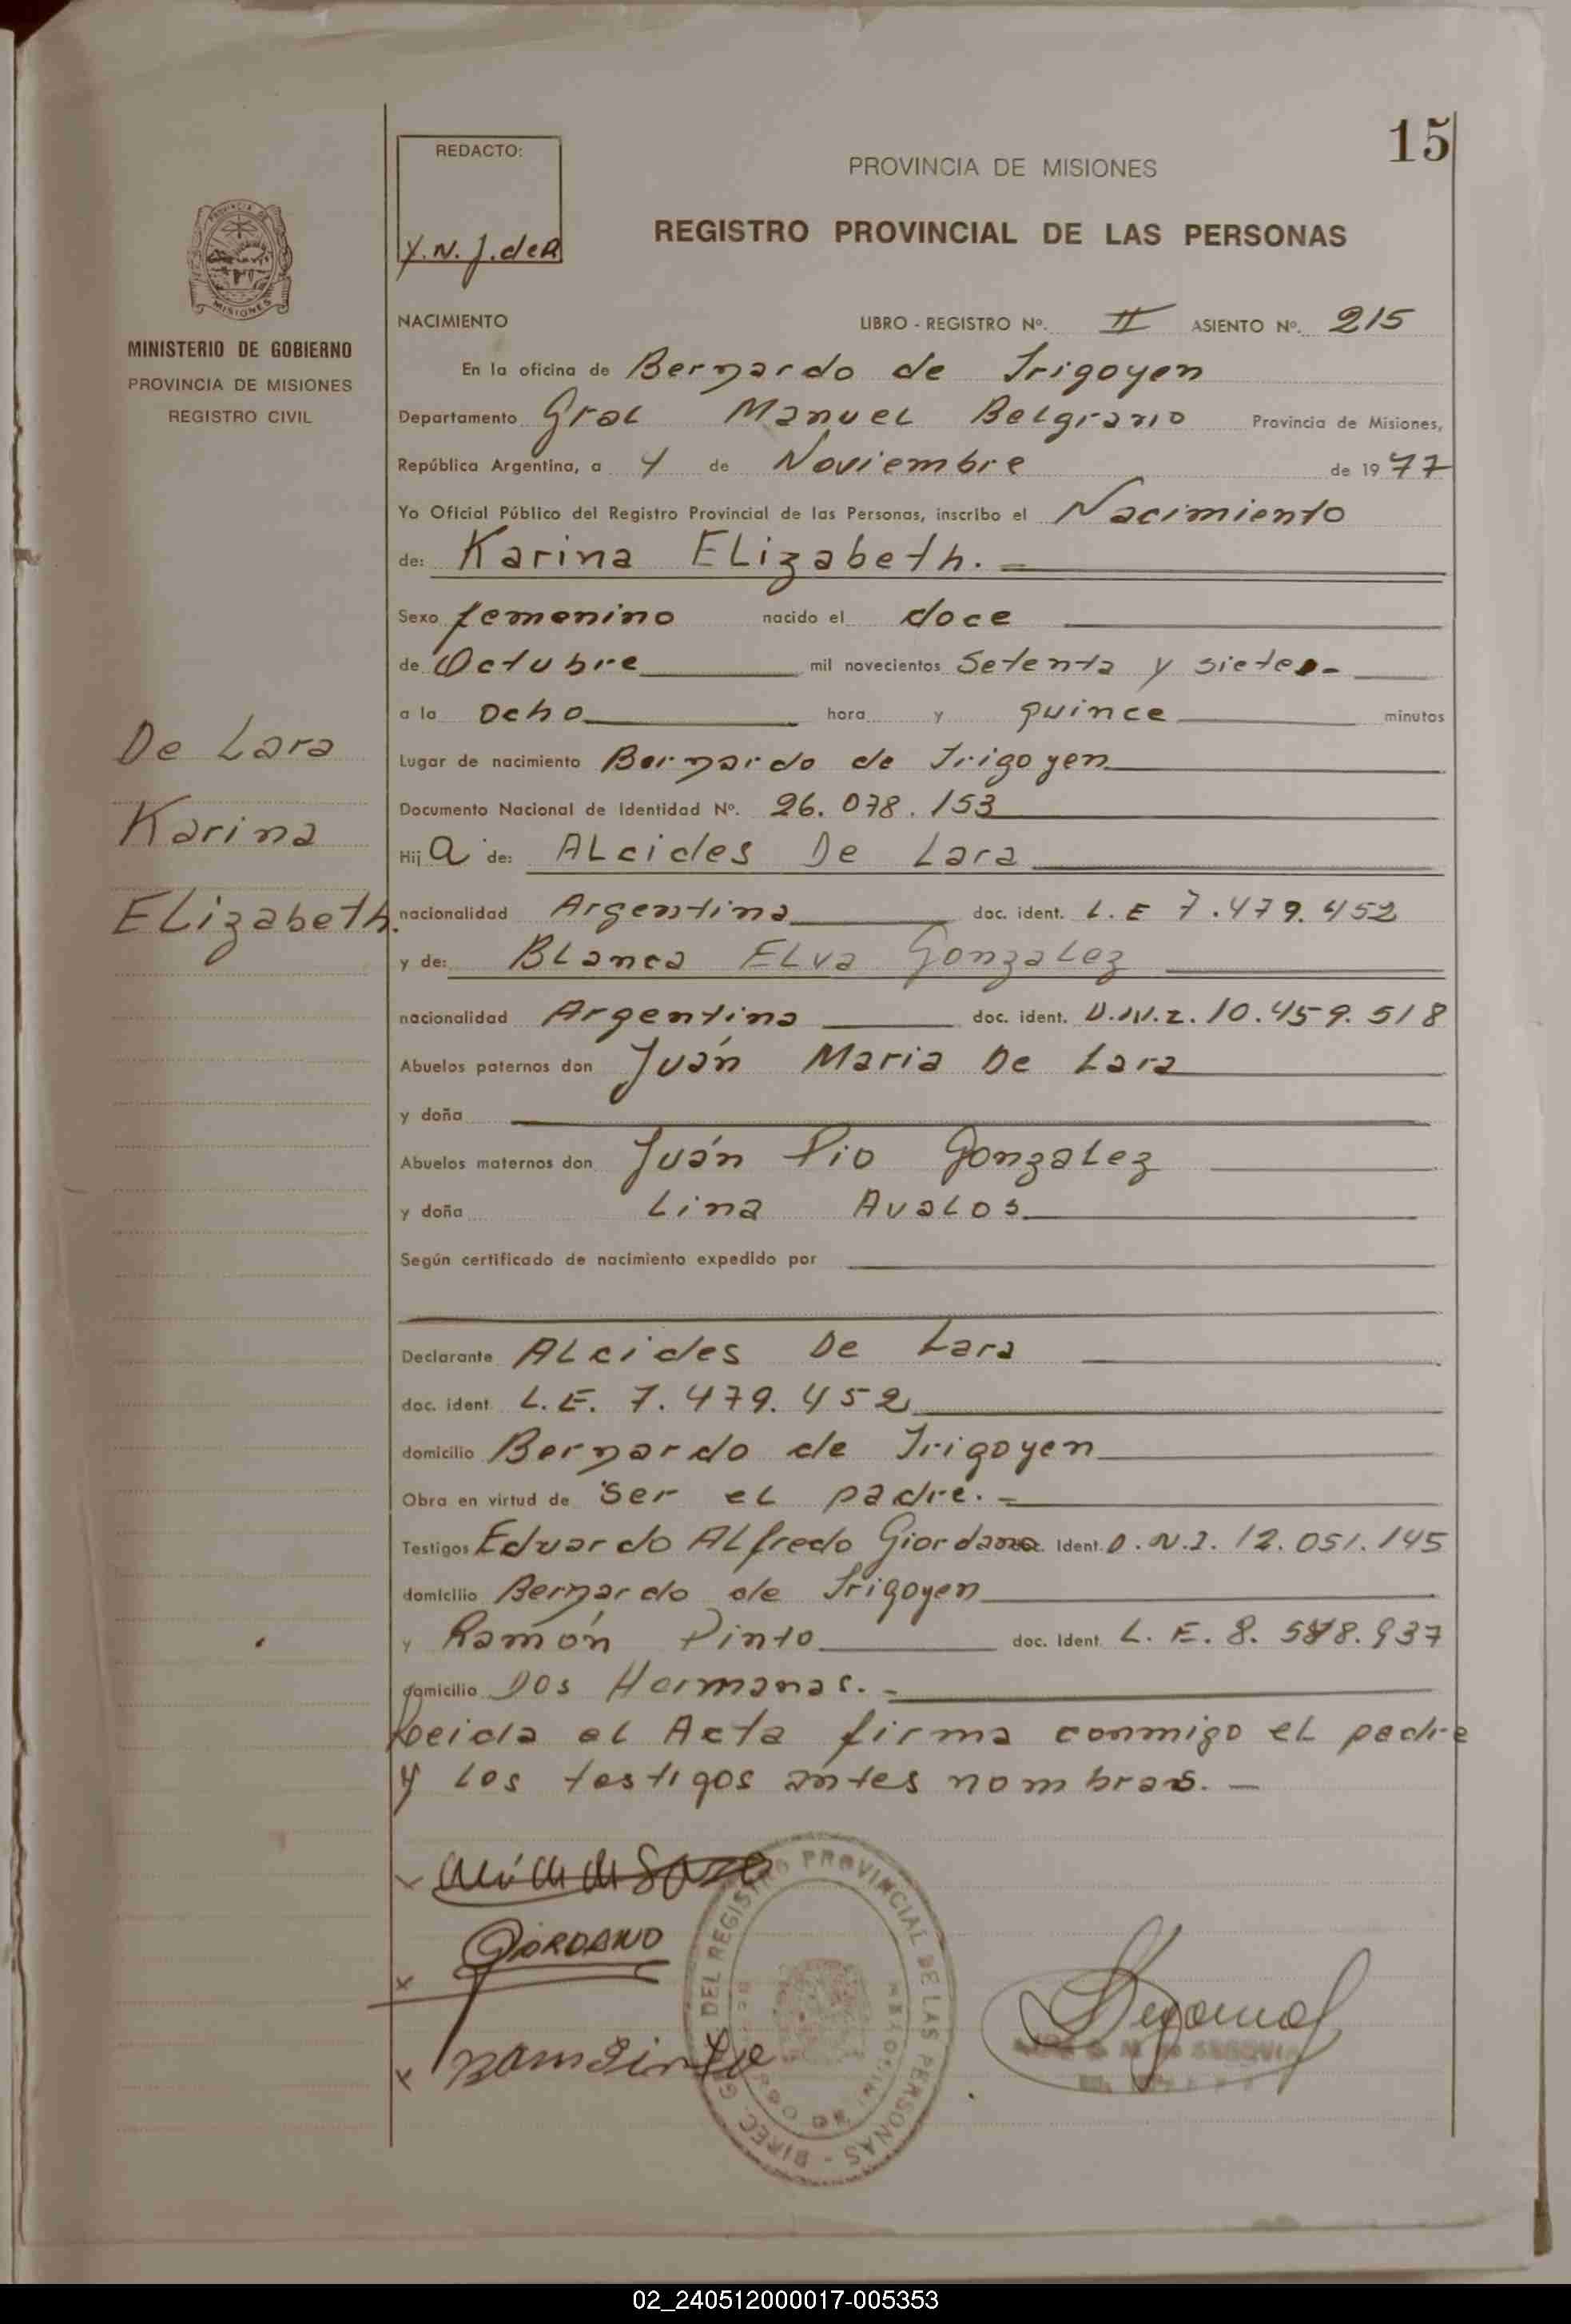 15
REDACTO:
Y. N. J. de A
PROVINCIA DE MISIONES
REGISTRO PROVINCIAL DE LAS PERSONAS
PROVINCIA DE
MISIONES
MINISTERIO DE GOBIERNO
PROVINCIA DE MISIONES
REGISTRO CIVIL
NACIMIENTO LIBRO - REGISTRO Nº. II ASIENTO Nº. 215
En la oficina de Bernardo de Irigoyen
Departamento Gral Manuel Belgrano Provincia de Misiones,
República Argentina, a 4 de Noviembre de 1977
Yo Oficial Público del Registro Provincial de las Personas, inscribo el Nacimiento
de: Karina Elizabeth. =
Sexo femenino nacido el doce
de Octubre mil novecientos Setenta y siete.-
a la Ocho hora y quince minutos
De Lara
Karina
Elizabeth.
Lugar de nacimiento Bernardo de Irigoyen
Documento Nacional de Identidad Nº. 26.078.153
Hija de: Alcides De Lara
nacionalidad Argentina doc. ident. L. E 7.479.452
y de: Blanca Elva Gonzalez
nacionalidad Argentina doc. ident. 10.459.518
Abuelos paternos don Juán Maria De Lara
y doña
Abuelos maternos don Juán Pio Gonzalez
y doña Lina Avalos
Según certificado de nacimiento expedido por
Declarante Alcides De Lara
doc. ident. L. E. 7.479.452
domicilio Bernardo de Irigoyen
Obra en virtud de Ser el padre. =
Testigos Eduardo Alfredo Giordano Ident. D. N. I. 12.051.145
domicilio Bernardo de Irigoyen
y Ramón Pinto doc. Ident. L. E. 8.
domicilio Dos Hermanas. -
Leida el Acta firma conmigo el padre
y los testigos antes nombras. -
GIORDANO
DIREC. G DEL REGISTRO PROVINCIAL DE LAS PERSONAS -
02_240512000017-005353